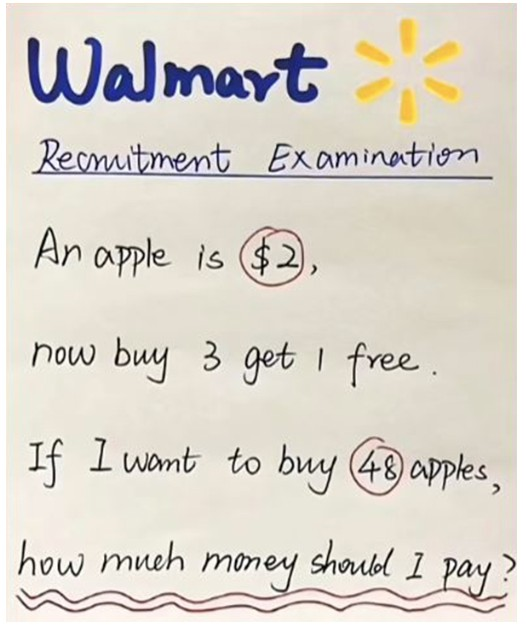 Walmart
Recruitment Examination
An apple is $2,
now buy 3 get 1 free.
If I want to buy 48 apples,
how much money should I pay?